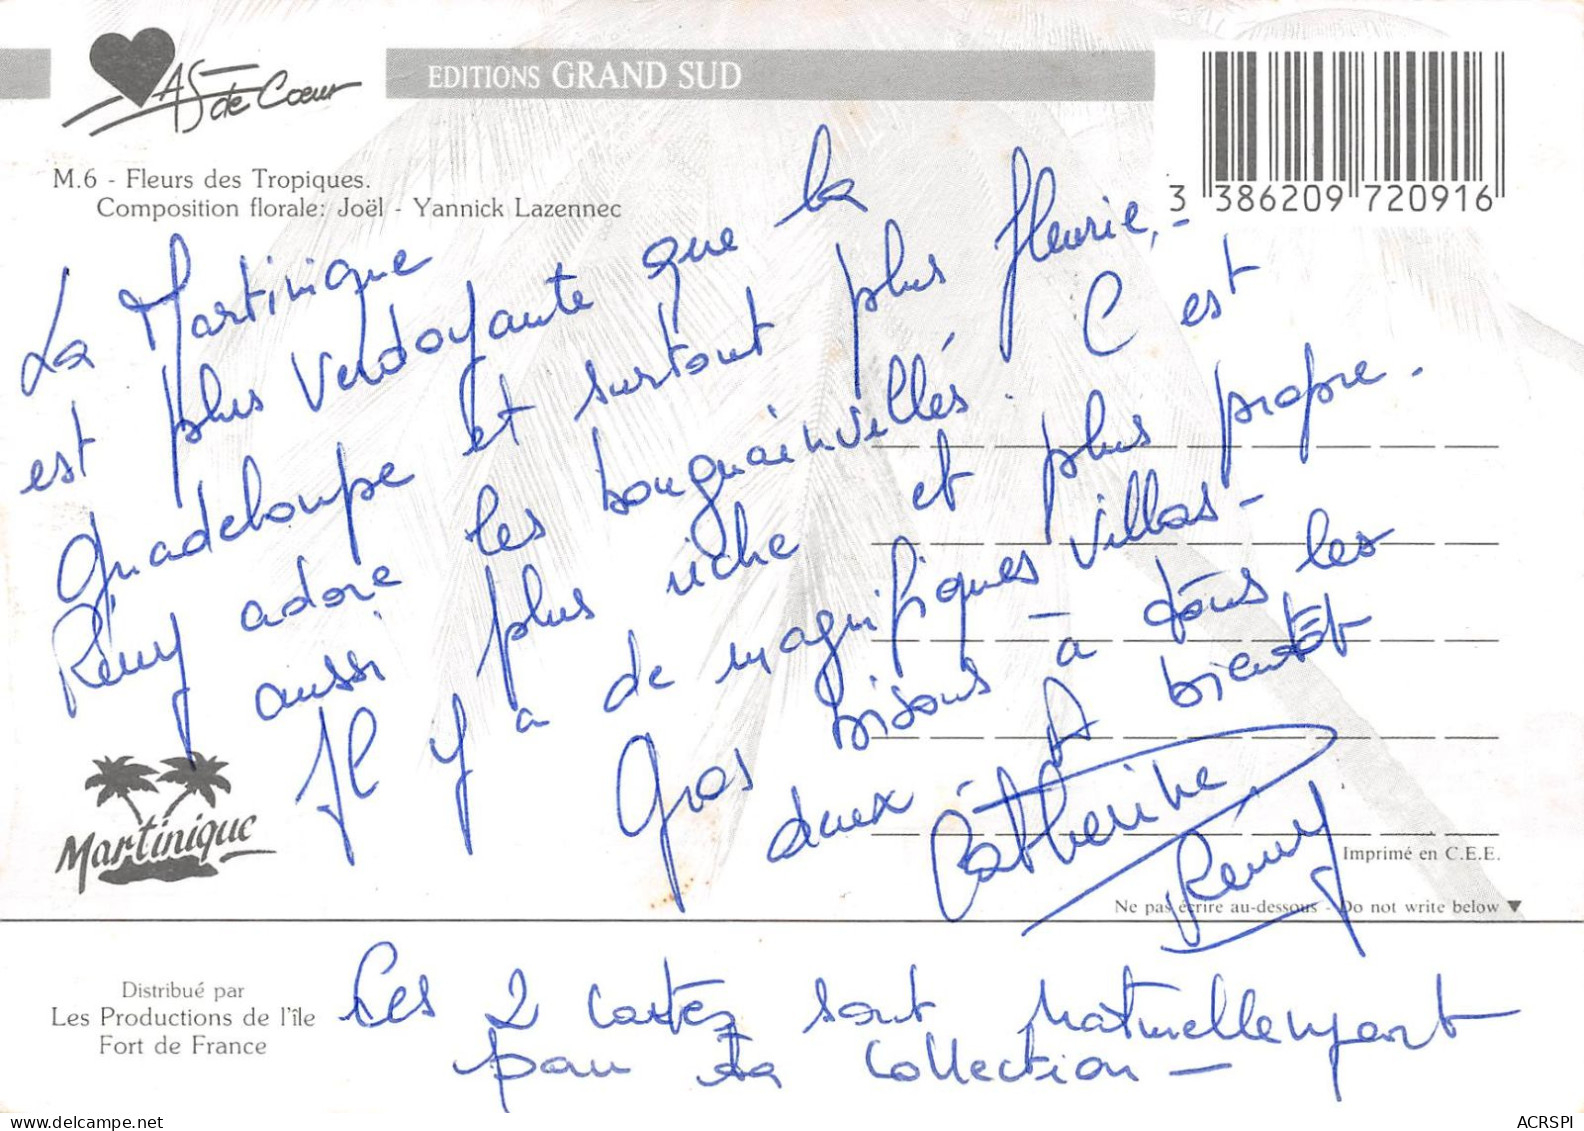 As de Coeur
EDITIONS GRAND SUD
M.6 - Fleurs des Tropiques.
Composition florale: Joël - Yannick Lazennec
3 386209 720916
La Martinique
est plus verdoyante que la
Guadeloupe et surtout plus fleurie,-
Rémy adore les bouguainvillés. C est
aussi plus riche et plus propre.
Il y a de magnifiques villas-
Gros bisous - à tous les
deux. A bientôt
Catherine
Rémy
Martinique
Imprimé en C.E.E.
Ne pas écrire au-dessous - Do not write below
Distribué par
Les Productions de l'île
Fort de France
Ces 2 cartes sont naturellement
pour ta collection -
ACRSPI